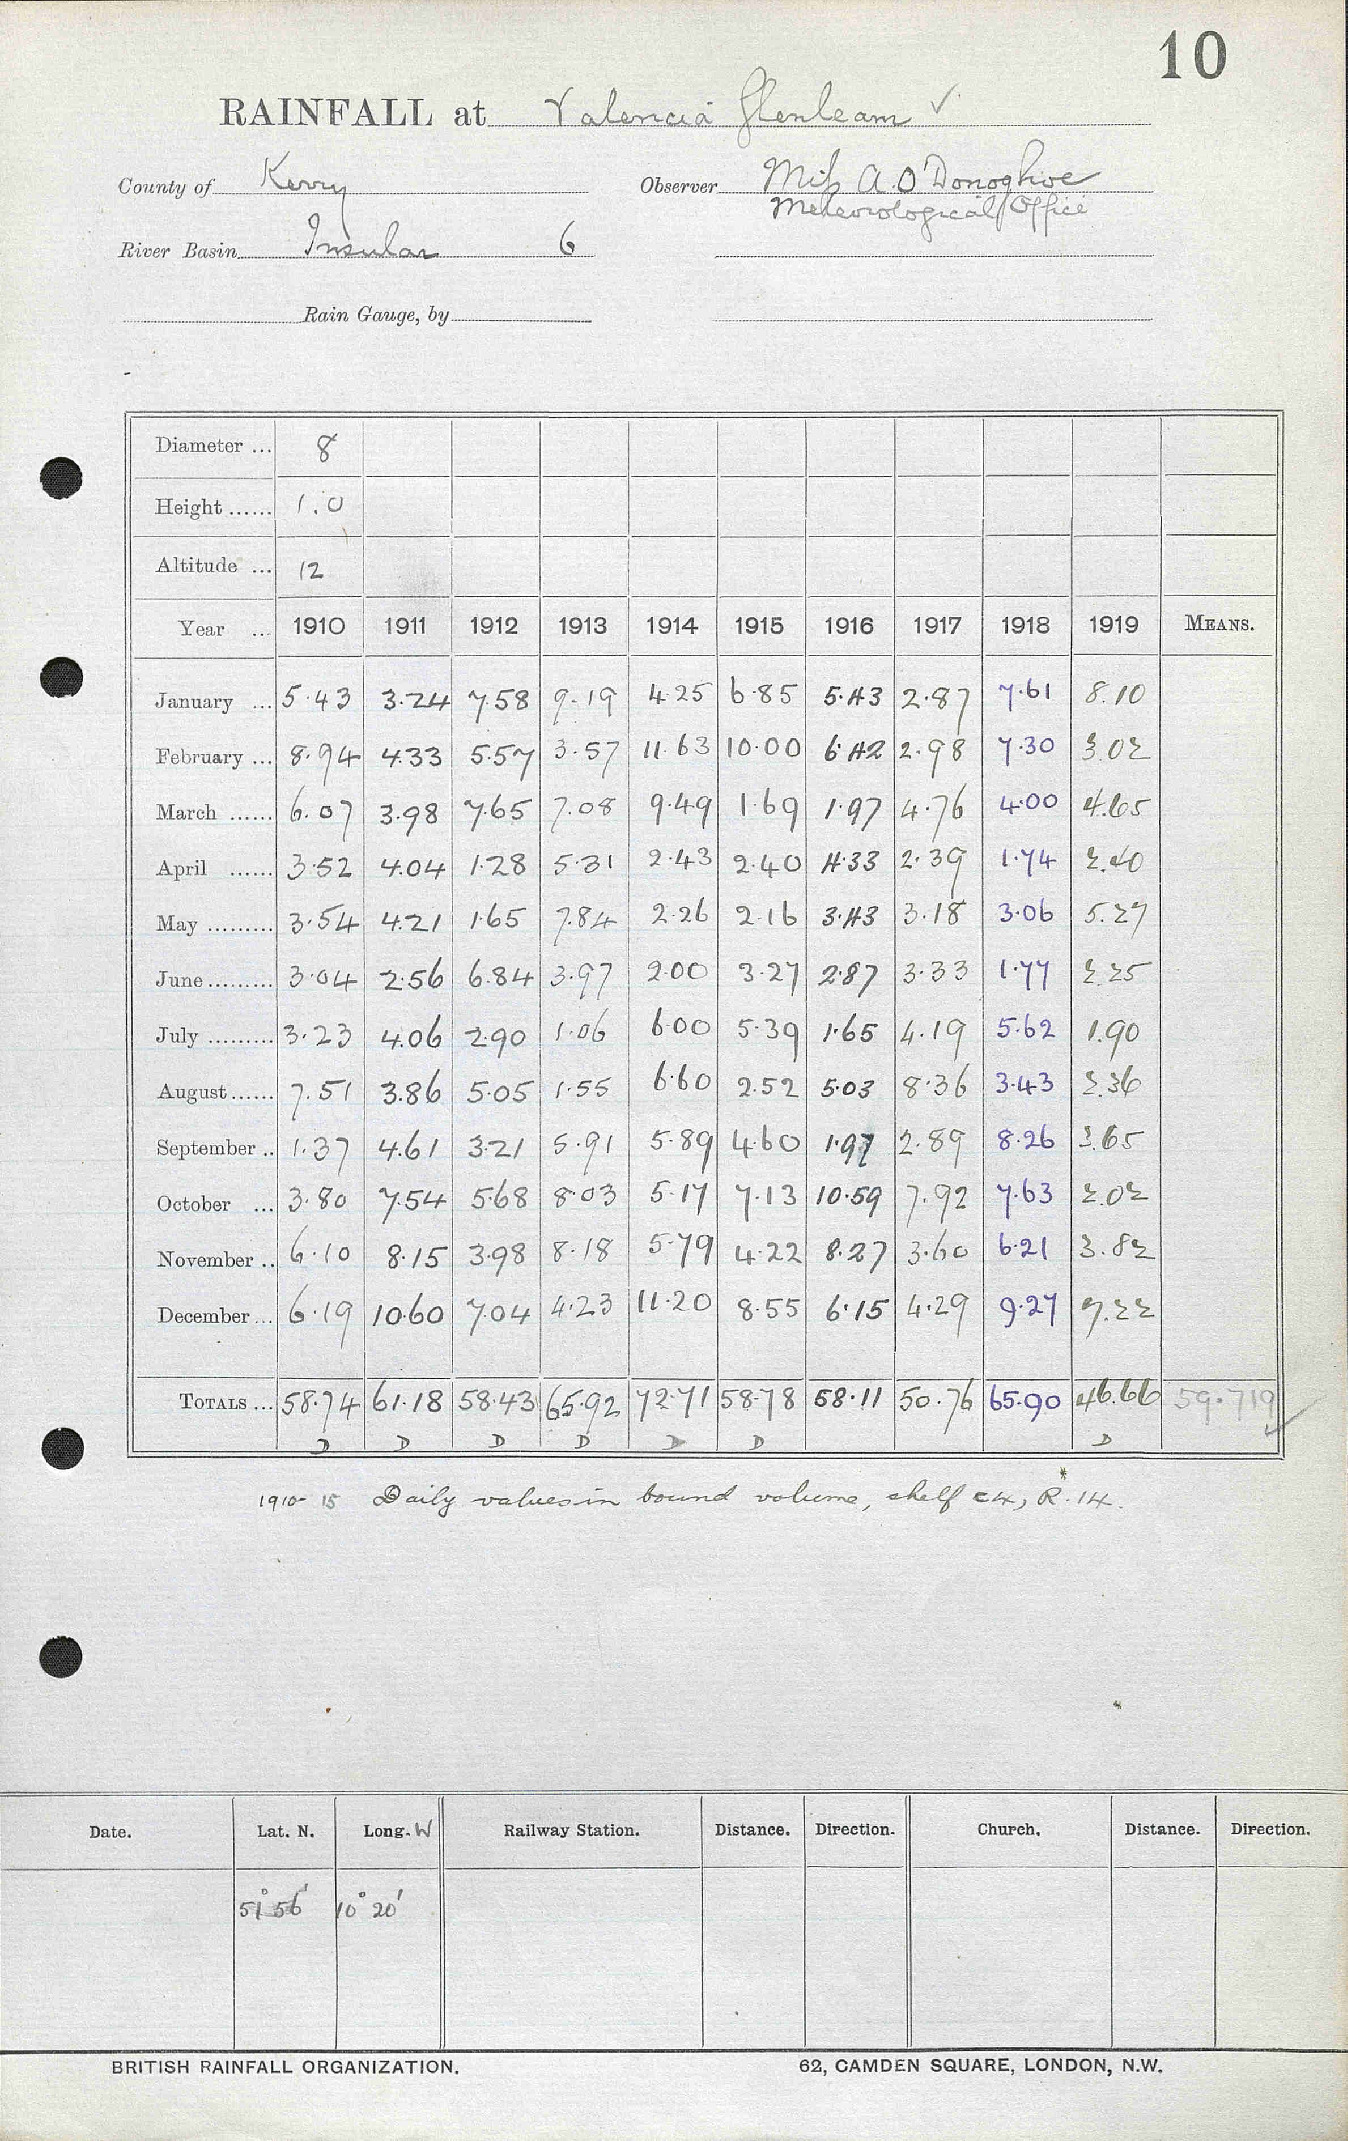 10
RAINFALL at Valencia Glenleam ✓
County of Kerry Observer Miss A. O'Donoghoe
Meteorological Office
River Basin Insular 6
Rain Gauge, by
Diameter ... 8
Height ...... 1.0
Altitude ... 12
Year ... 1910 1911 1912 1913 1914 1915 1916 1917 1918 1919 MEANS.
January ... 5.43 3.24 7.58 9.19 4.25 6.85 5.43 2.87 7.61 8.10
February ... 8.94 4.33 5.57 3.57 11.63 10.00 6.42 2.98 7.30 3.02
March ...... 6.07 3.98 7.65 7.08 9.49 1.69 1.97 4.76 4.00 4.65
April ...... 3.52 4.04 1.28 5.31 2.43 2.40 4.33 2.39 1.74 2.40
May ......... 3.54 4.21 1.65 7.84 2.26 2.16 3.43 3.18 3.06 5.27
June ......... 3.04 2.56 6.84 3.97 2.00 3.27 2.87 3.33 1.77 2.25
July ......... 3.23 4.06 2.90 1.06 6.00 5.39 1.65 4.19 5.62 1.90
August ...... 7.51 3.86 5.05 1.55 6.60 2.52 5.03 8.36 3.43 2.36
September .. 1.37 4.61 3.21 5.91 5.89 4.60 1.97 2.89 8.26 3.65
October ... 3.80 7.54 5.68 8.03 5.17 7.13 10.59 7.92 7.63 2.02
November .. 6.10 8.15 3.98 8.18 5.79 4.22 8.27 3.60 6.21 3.82
December ... 6.19 10.60 7.04 4.23 11.20 8.55 6.15 4.29 9.27 7.22
TOTALS ... 58.74 61.18 58.43 65.92 72.71 58.78 58.11 50.76 65.90 46.66 59.719 ✓
D D D D D D D
1910-15 Daily values in bound volume, shelf C4, R.14.
Date. Lat. N. Long. W Railway Station. Distance. Direction. Church. Distance. Direction.
51° 56' 10° 20'
BRITISH RAINFALL ORGANIZATION. 62, CAMDEN SQUARE, LONDON, N.W.